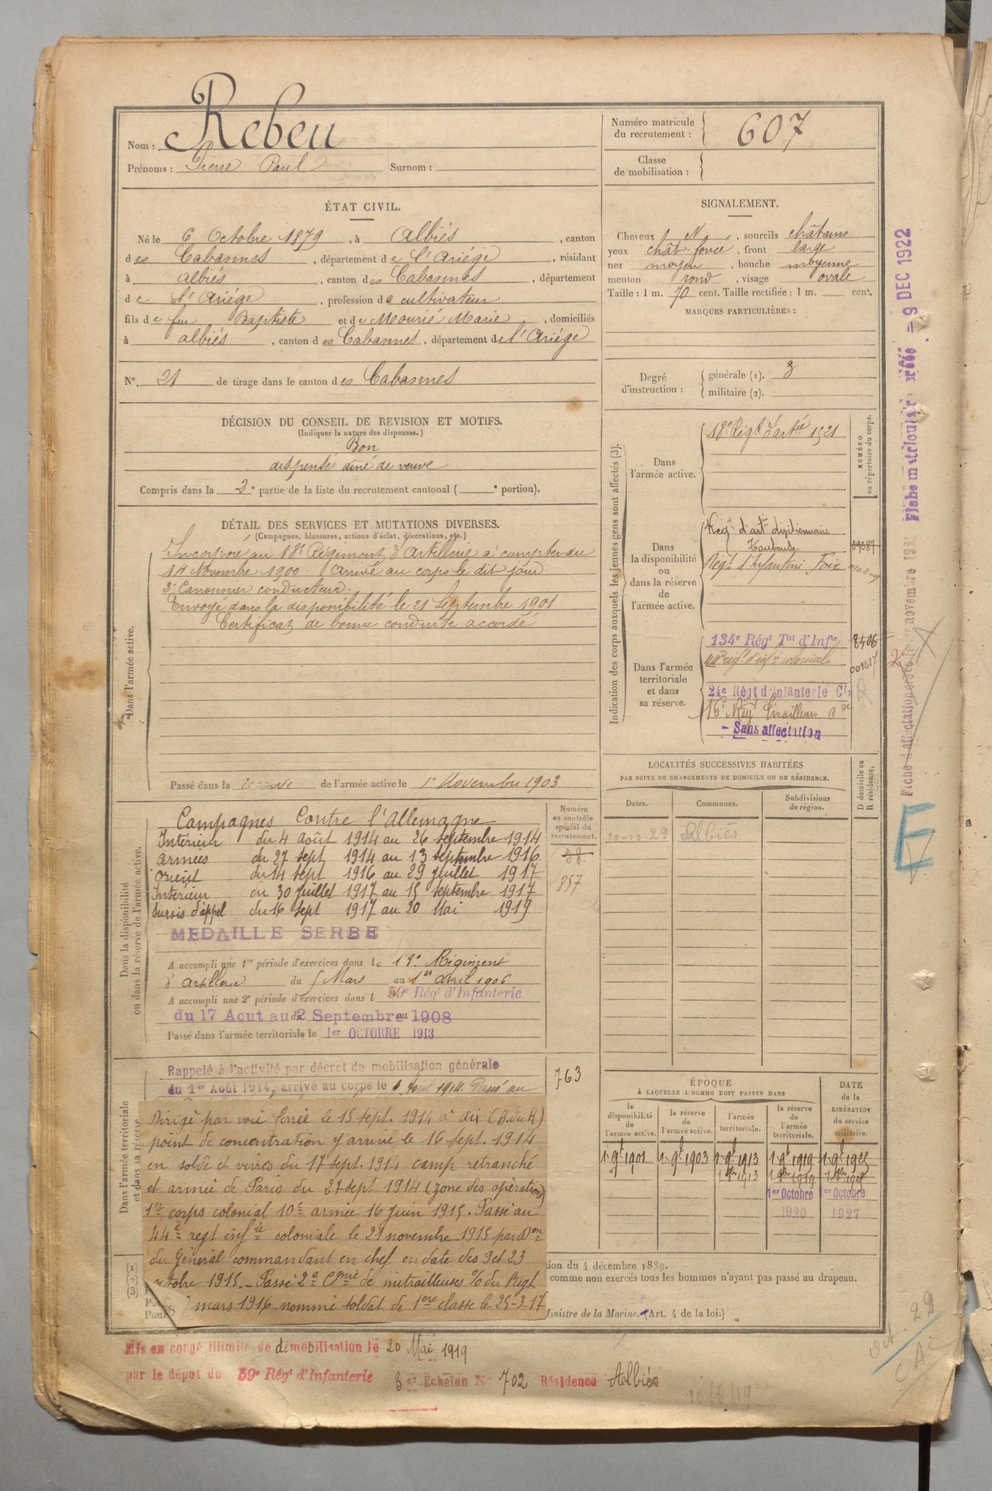 Nom : Rebeu
Prénoms : Pierre Paul Surnom :
Numéro matricule du recrutement : 607
Classe de mobilisation :
ÉTAT CIVIL.
Né le 6 Octobre 1879, à Albiés, canton
des Cabannes, département de l'Ariége, résidant
à albiés, canton des Cabannes, département
de l'Ariége, profession de cultivateur
fils de feu Baptiste et de Mourié Marie, domiciliés
à albiés, canton des Cabannes, département de l'Ariége
N° 21 de tirage dans le canton des Cabannes
SIGNALEMENT.
Cheveux N, sourcils châtains
yeux chât foncé, front large
nez moyen, bouche moyenne
menton rond, visage ovale
Taille : 1 m. 70 cent. Taille rectifiée : 1 m. cent.
MARQUES PARTICULIÈRES :
Degré d'instruction : générale (1). 3
militaire (2).
DÉCISION DU CONSEIL DE REVISION ET MOTIFS.
(Indiquer la nature des dispenses.)
Bon
dispensé ainé de veuve
Compris dans la 2e partie de la liste du recrutement cantonal ( e portion).
DÉTAIL DES SERVICES ET MUTATIONS DIVERSES.
(Campagnes, blessures, actions d'éclat, décorations, etc.)
Dans l'armée active.
Incorporé au 18e Régiment d'Artillerie à compter du
14 Novembre 1900 Arrivé au corps le dit jour
2e Canonnier conducteur.
Envoyé dans la disponibilité le 21 Septembre 1901
Certificat de bonne conduite accordé
Passé dans la réserve de l'armée active le 1er Novembre 1903
Indication des corps auxquels les jeunes gens sont affectés (3).
NUMÉRO au répertoire du corps.
Dans l'armée active.
18e Régt d'artie 1521
Dans la disponibilité ou dans la réserve de l'armée active.
Regt d'artie divisionnaire
Régt d'Infanterie Foix
Dans l'armée territoriale et dans sa réserve.
134e Régt Tal d'Infie 8406
44e regt d'infie coloniale
24e Régt d'Infanterie Cle
16e Reg Tirailleurs
- Sans affectation
Dans la disponibilité ou dans la réserve de l'armée active.
Campagnes Contre l'Allemagne
Intérieur du 4 août 1914 au 26 septembre 1914
armées du 27 sept 1914 au 13 septembre 1916
orient du 14 sept 1916 au 29 juillet 1917
Intérieur du 30 juillet 1917 au 15 septembre 1917
Sursis d'appel du 16 sept 1917 au 20 Mai 1919
MEDAILLE SERBE
Numéro au contrôle spécial du recrutement.
38
857
A accompli une 1re période d'exercices dans le 19e Régiment
d'artillerie du 5 Mars au 1er avril 1906
A accompli une 2e période d'exercices dans l 59e Régt d'Infanterie
du 17 Aout au 2 Septembre 1908
Passé dans l'armée territoriale le 1er OCTOBRE 1913
LOCALITÉS SUCCESSIVES HABITÉES
PAR SUITE DE CHANGEMENTS DE DOMICILE OU DE RÉSIDENCE.
Dates. Communes. Subdivisions de région. D. domicile ou R. résidence.
29 Albiés
Dans l'armée territoriale et dans sa réserve.
Rappelé à l'activité par décret de mobilisation générale
du 1er Août 1914, arrivé au corps le 4 Août 1914. Passé au
763
Dirigé par voie ferrée le 15 sept. 1914 à dix (B.du R)
point de concentration y arrivé le 16 sept. 1914
en solde et vivres du 17 sept. 1914 camp retranché
et armée de Paris du 27 sept 1914 (zone des opérations)
1er corps colonial 10e armée 16 juin 1915. Passé au
44e regt infie coloniale le 21 novembre 1915 par Don
du Général commandant en chef en date des 9 et 23
octobre 1915. Passé 2e Cgnie de mitrailleuses % du Regt
mars 1916 nommé soldat de 1ere classe le 25-3-17
ÉPOQUE
À LAQUELLE L'HOMME DOIT PASSER DANS
la disponibilité de l'armée active. la réserve de l'armée active. l'armée territoriale. la réserve de l'armée territoriale. DATE de la LIBÉRATION du service militaire.
1 9bre 1901 1 9bre 1903 1 9bre 1913 1 9bre 1919
1er Octobre 1er Octobre
1920 1927
comme non exercés tous les hommes n'ayant pas passé au drapeau.
Ministre de la Marine. (Art. 4 de la loi.)
Mis en congé illimité de démobilisation le 20 Mai 1919
par le dépot du 59e Régt d'Infanterie 3e Echelon N° 702 Résidence Albiés
Fiche matriculaire - 9 DEC 1922
E